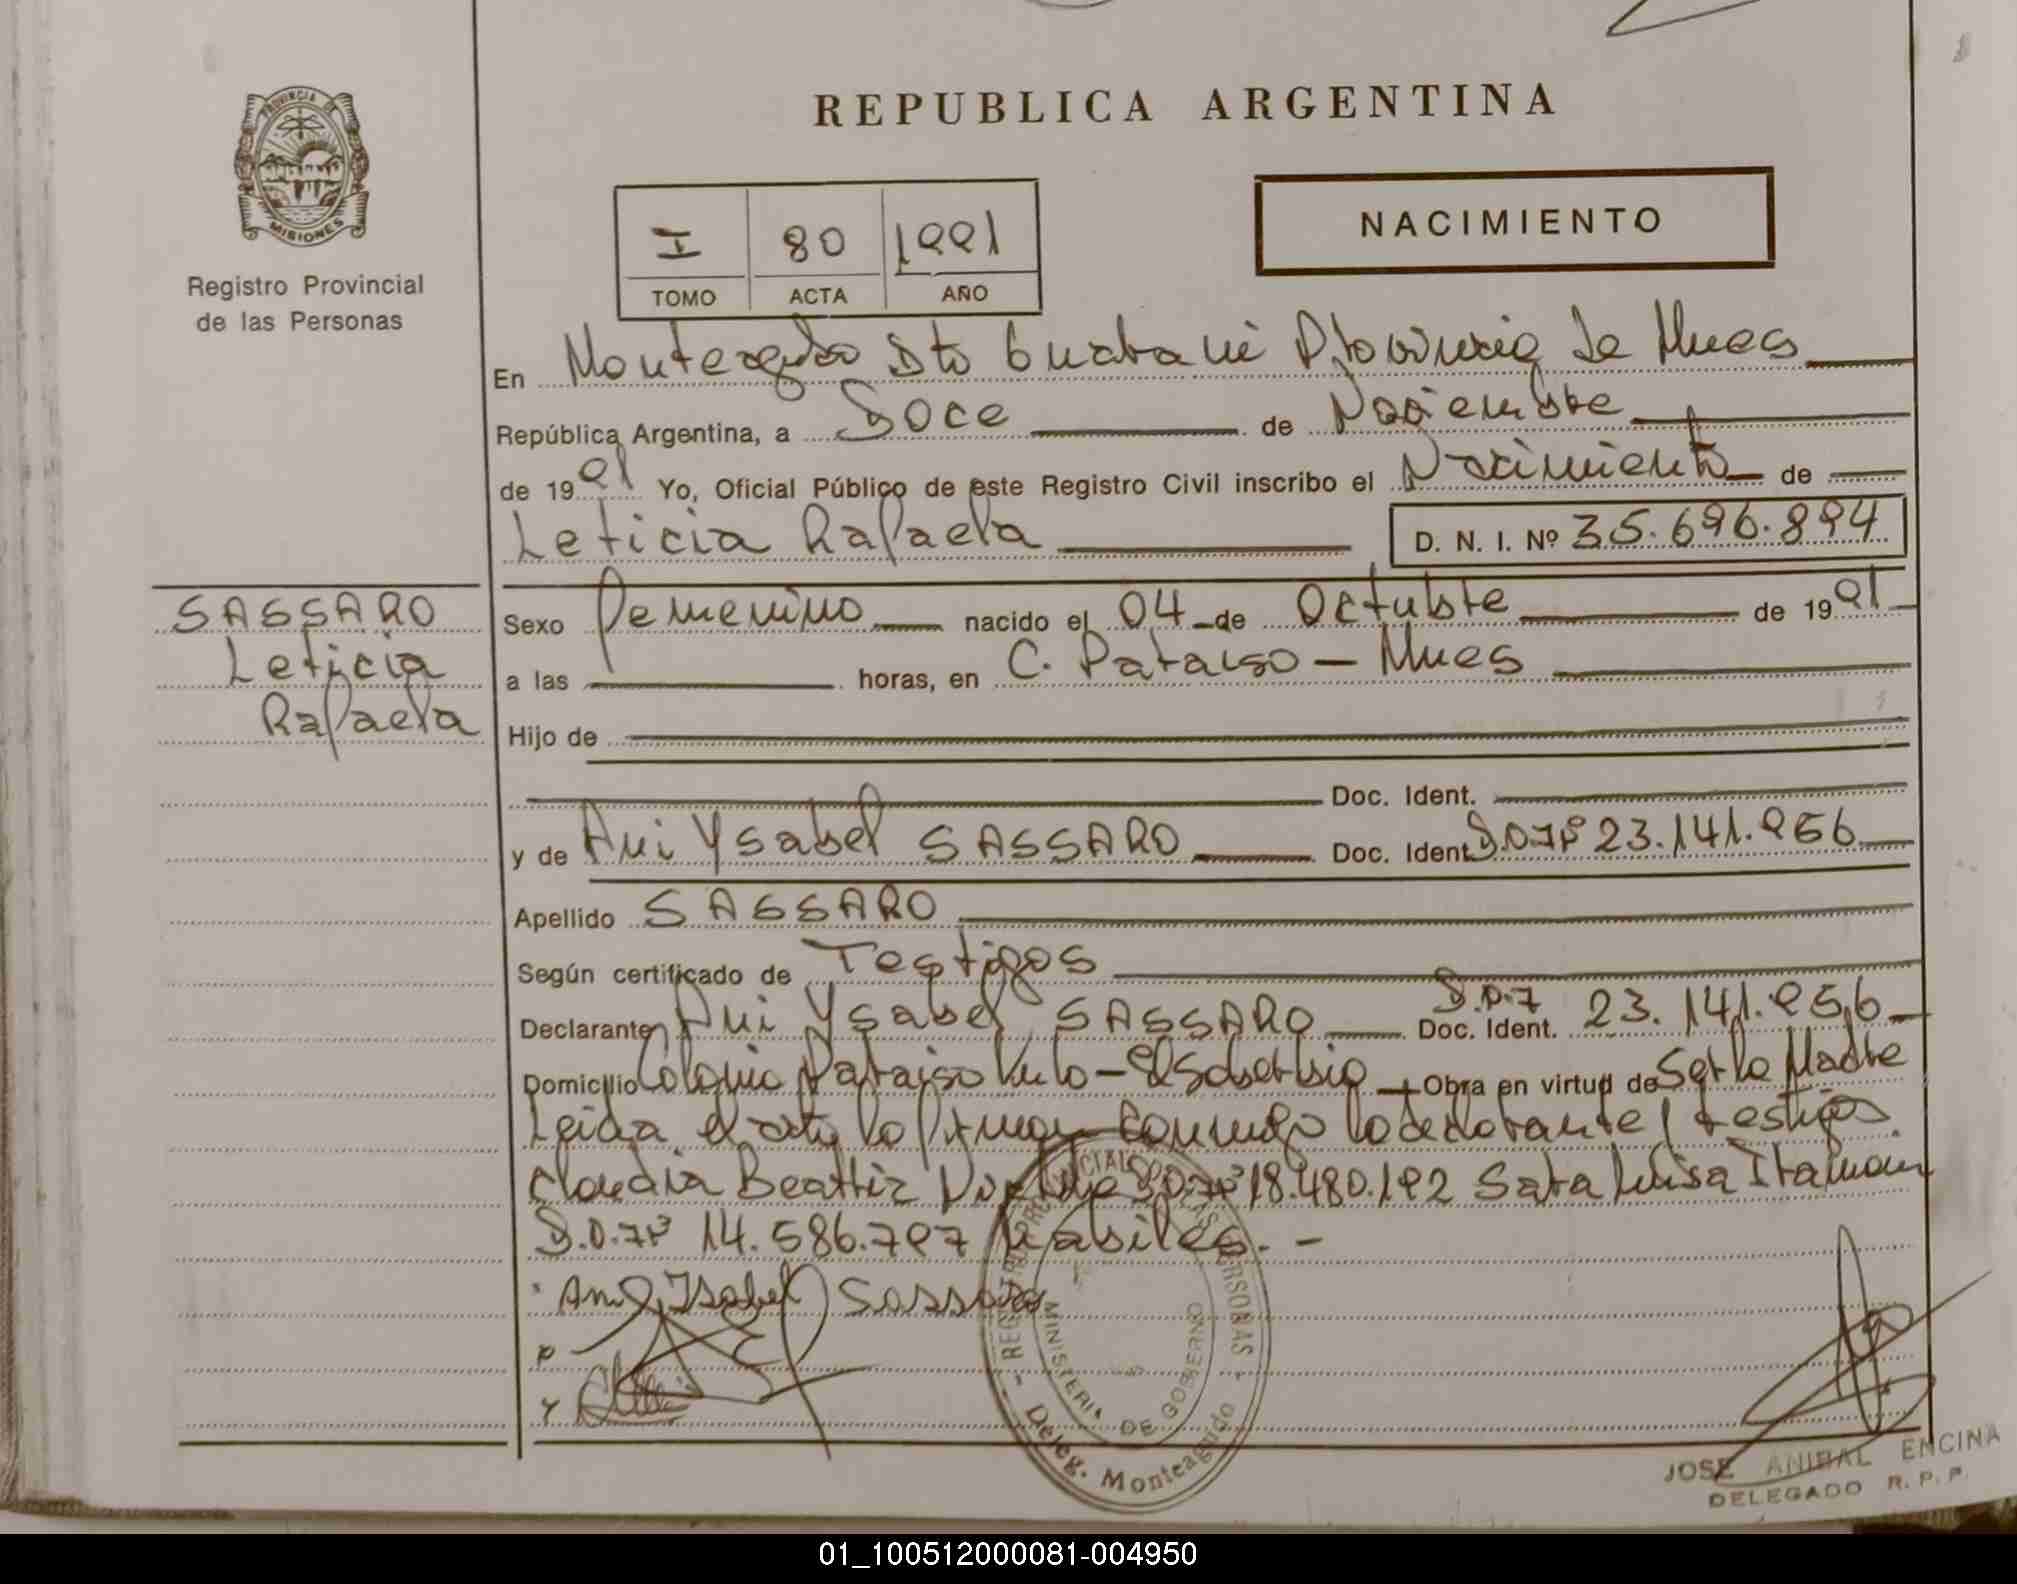 REPUBLICA ARGENTINA
PROVINCIA DE
MISIONES
Registro Provincial
de las Personas
I 80 1991
TOMO ACTA AÑO
NACIMIENTO
En Monteagudo Dto Guarani Provincia de Mnes
República Argentina, a Doce de Noviembre
de 1991 Yo, Oficial Público de este Registro Civil inscribo el Nacimiento de
Leticia Rafaela D. N. I. Nº 35.696.894
SASSARO
Leticia
Rafaela
Sexo Femenino nacido el 04 de Octubre de 1991
a las horas, en C. Paraiso - Mnes
Hijo de
Doc. Ident.
y de Ysabel SASSARO Doc. Ident 23.141.956
Apellido SASSARO
Según certificado de Testigos
Declarante Ysabel SASSARO Doc. Ident. 23.141.956
Domicilio Colonia Paraiso - El Soberbio Obra en virtud de Ser la Madre
Leida el acta la firman conmigo la declarante y testigos
Claudia Beatriz 18.480.192 Sara Luisa
14.586.797 habiles. -
Isabel Sassaro
P
Y
REGISTRO PROVINCIAL DE LAS PERSONAS
MINISTERIO DE GOBIERNO
Deleg. Monteagudo
JOSE ANIBAL ENCINA
DELEGADO R. P. P.
01_100512000081-004950